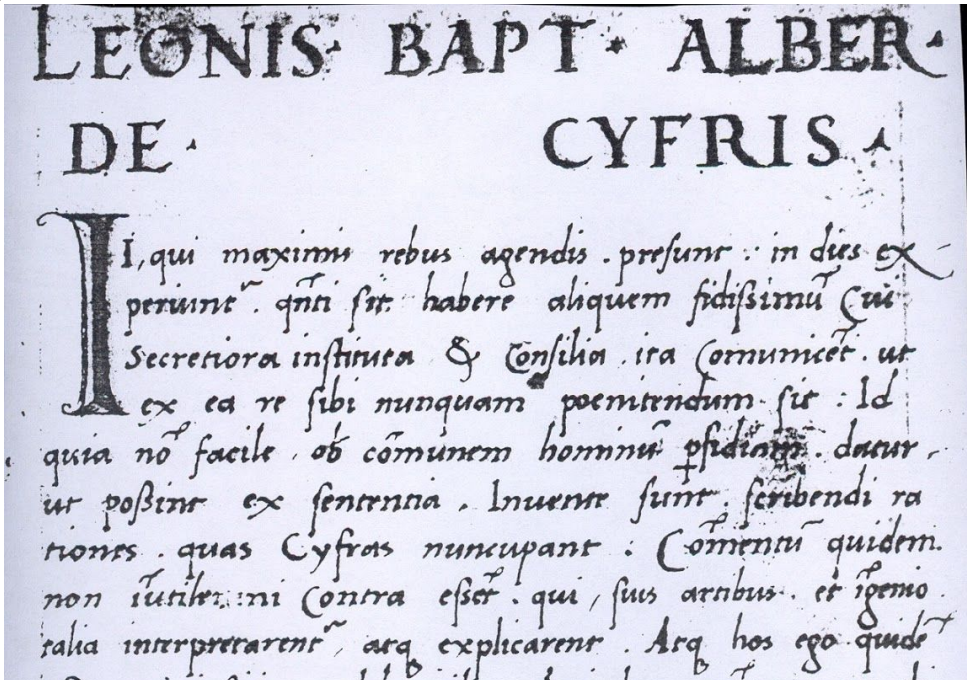 LEONIS· BAPT· ALBER·
DE· CYFRIS·
II, qui maximis rebus agendis . presunt : in dies ex
periunt᷑ . qñti sit habere aliquem fidissimũ Cui
Secretiora instituta & Consilia . ita Comunicẽt . ut
ex ea re sibi nunquam poenitendum sit : Id
quia nõ facile . ob cõmunem hominũ ꝑfidiam . datur ,
ut possint ex sententia . Invente sunt . scribendi ra
tiones . quas Cyfras nuncupant : Cõmentũ quidem .
non iũtile : ni Contra essẽt . qui , suis artibus . et ĩgenio
talia interpretarent᷑ , atq explicarent . Atq hos ego quidẽ